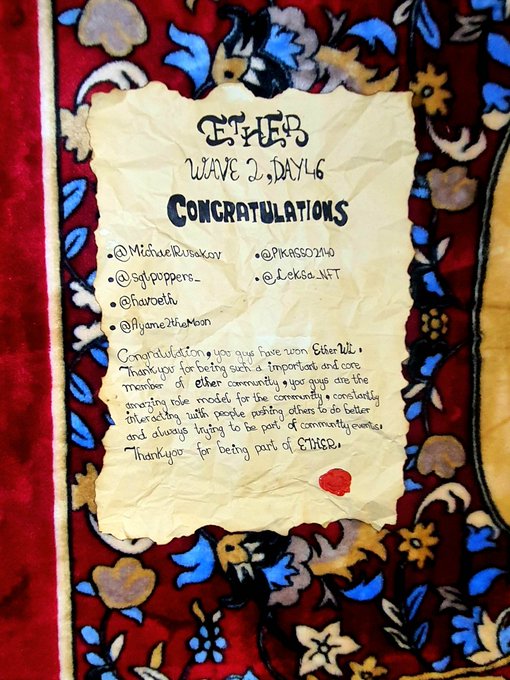 ETHER
WAVE 2, DAY46
CONGRATULATIONS
• @MichaelRusakov
• @sgtpuppers_
• @havoeth
• @Ayame2theMoon
• @PIKASSO2140
• @Leksa_NFT
Congratulation, you guys have won Ether Wl.
Thankyou for being such a important and core
member of ether community, you guys are the
amazing role model for the community, constantly
interacting with people pushing others to do better
and always trying to be part of community events.
Thankyou for being part of ETHER.